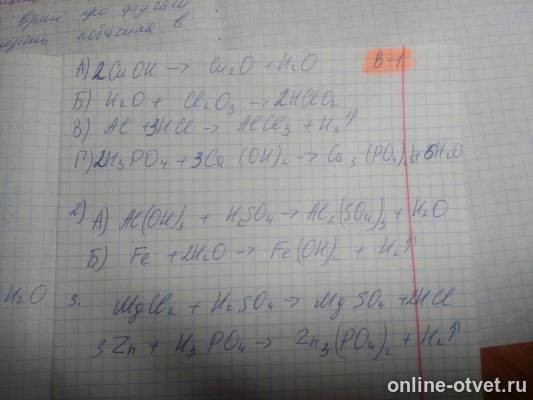 врии про другий
побачила в
А) 2CuOH → Cu₂O + H₂O
В-1
Б) H₂O + Cl₂O₃ → 2HClO₂
В) Al + 3HCl → AlCl₃ + H₂↑
Г) 2H₃PO₄ + 3Ca(OH)₂ → Ca₃(PO₄)₂ + 6H₂O
2) А) Al(OH)₃ + H₂SO₄ → Al₂(SO₄)₃ + H₂O
Б) Fe + 2H₂O → Fe(OH)₂ + H₂↑
H₂O
3. MgCl₂ + H₂SO₄ → MgSO₄ + 2HCl
3Zn + H₃PO₄ → Zn₃(PO₄)₂ + H₂↑
online-otvet.ru